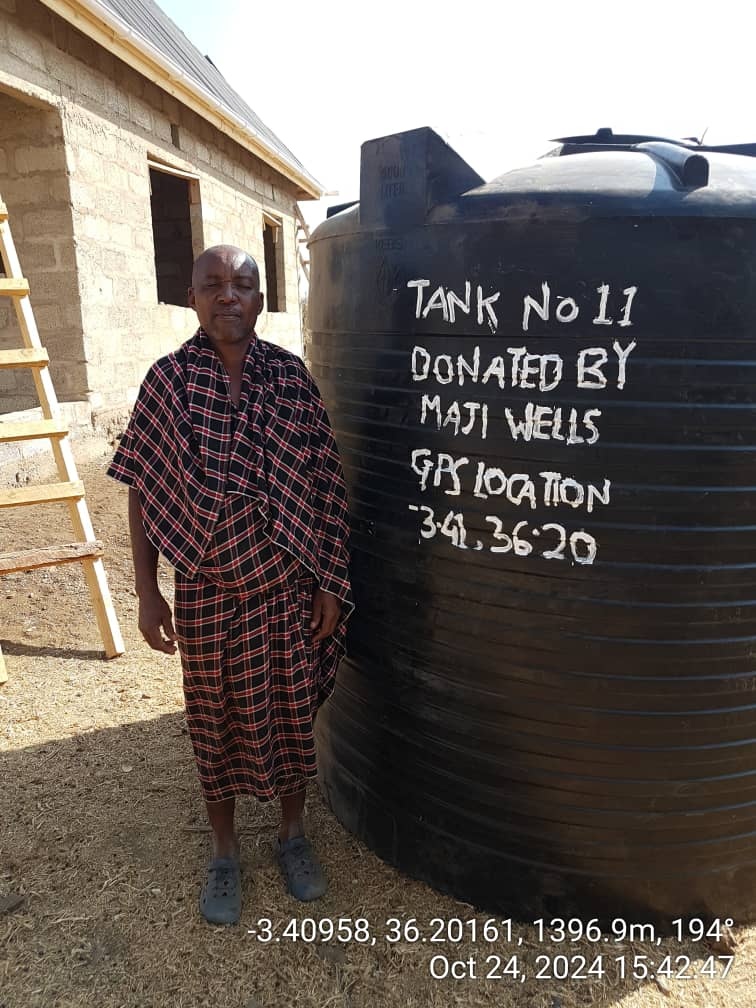 TANK No 11
DONATED BY
MAJI WELLS
GPS LOCATION
-3.41, 36.20
-3.40958, 36.20161, 1396.9m, 194°
Oct 24, 2024 15:42:47